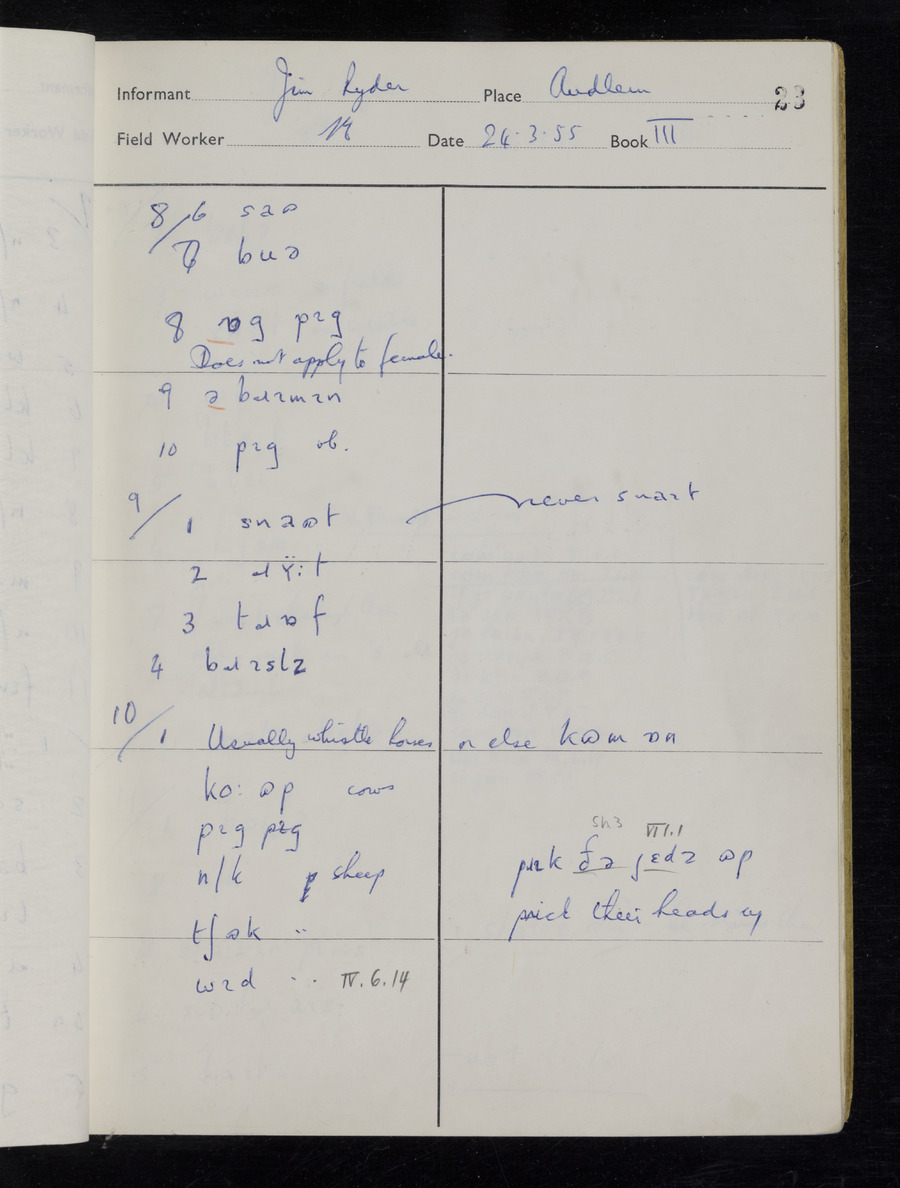 Informant Jim Ryder Place Audlem 23
Field Worker Date 24.3.55 Book III
8/6 saʊ
7 buə
8 ɒg pɪg
Does not apply to female.
9 ə bɹɪmɪn
10 pɪg ob.
9/1 snaʊt never snaɪt
2 ɹʏ:t
3 tɹɒf
4 bɹɪslz
10/1 Usually whistle horses or else kʊm ɒn
ko: ʊp cows
pɪg pɪg
n/k sheep
tʃʊk "
wɪd " IV.6.14
sh3 VI.1.1
pɹɪk ðə jɛdz ʊp
prick their heads up